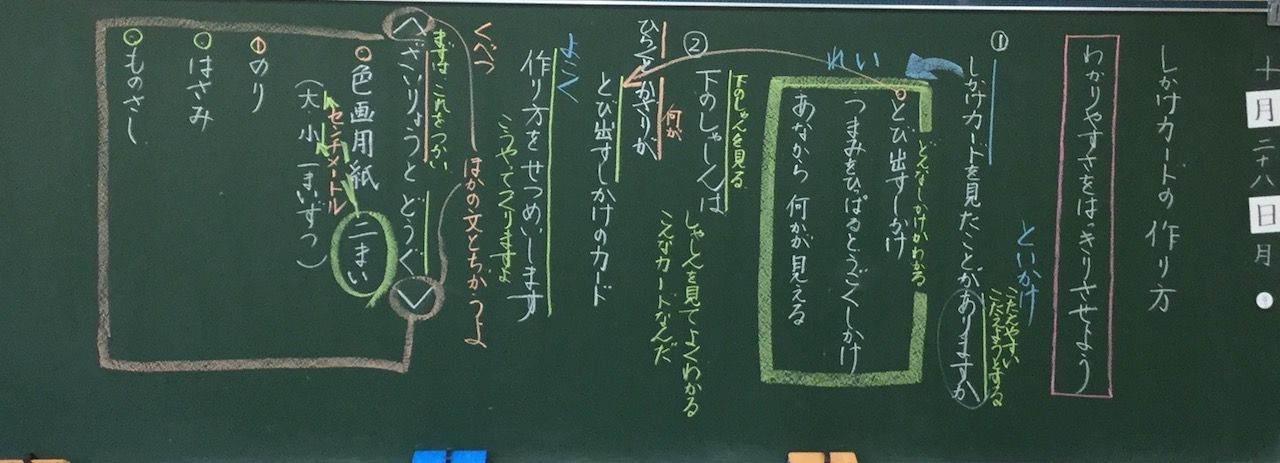 十月二十八日月
しかけカードの作り方
わかりやすさをはっきりさせよう
といかけ
こたえやすい
こたえようとする
①
しかけカードを見たことがありますか
どんなしかけかわかる
れい
とび出すしかけ
つまみをひっぱるとうごくしかけ
あなから何かが見える
下のしゃしんを見る
②
下のしゃしんは
しゃしんを見てよくわかる
こんなカードなんだ
何が
ひらくとかざりが
とび出すしかけのカード
よこく
作り方をせつめいします
こうやってつくりますよ
くべつ
ほかの文とちがうよ
まずはこれをつかい
〈ざいりょうとどうぐ〉
色画用紙 二まい
センチメートル
(大 小 一まいずつ)
のり
はさみ
ものさし